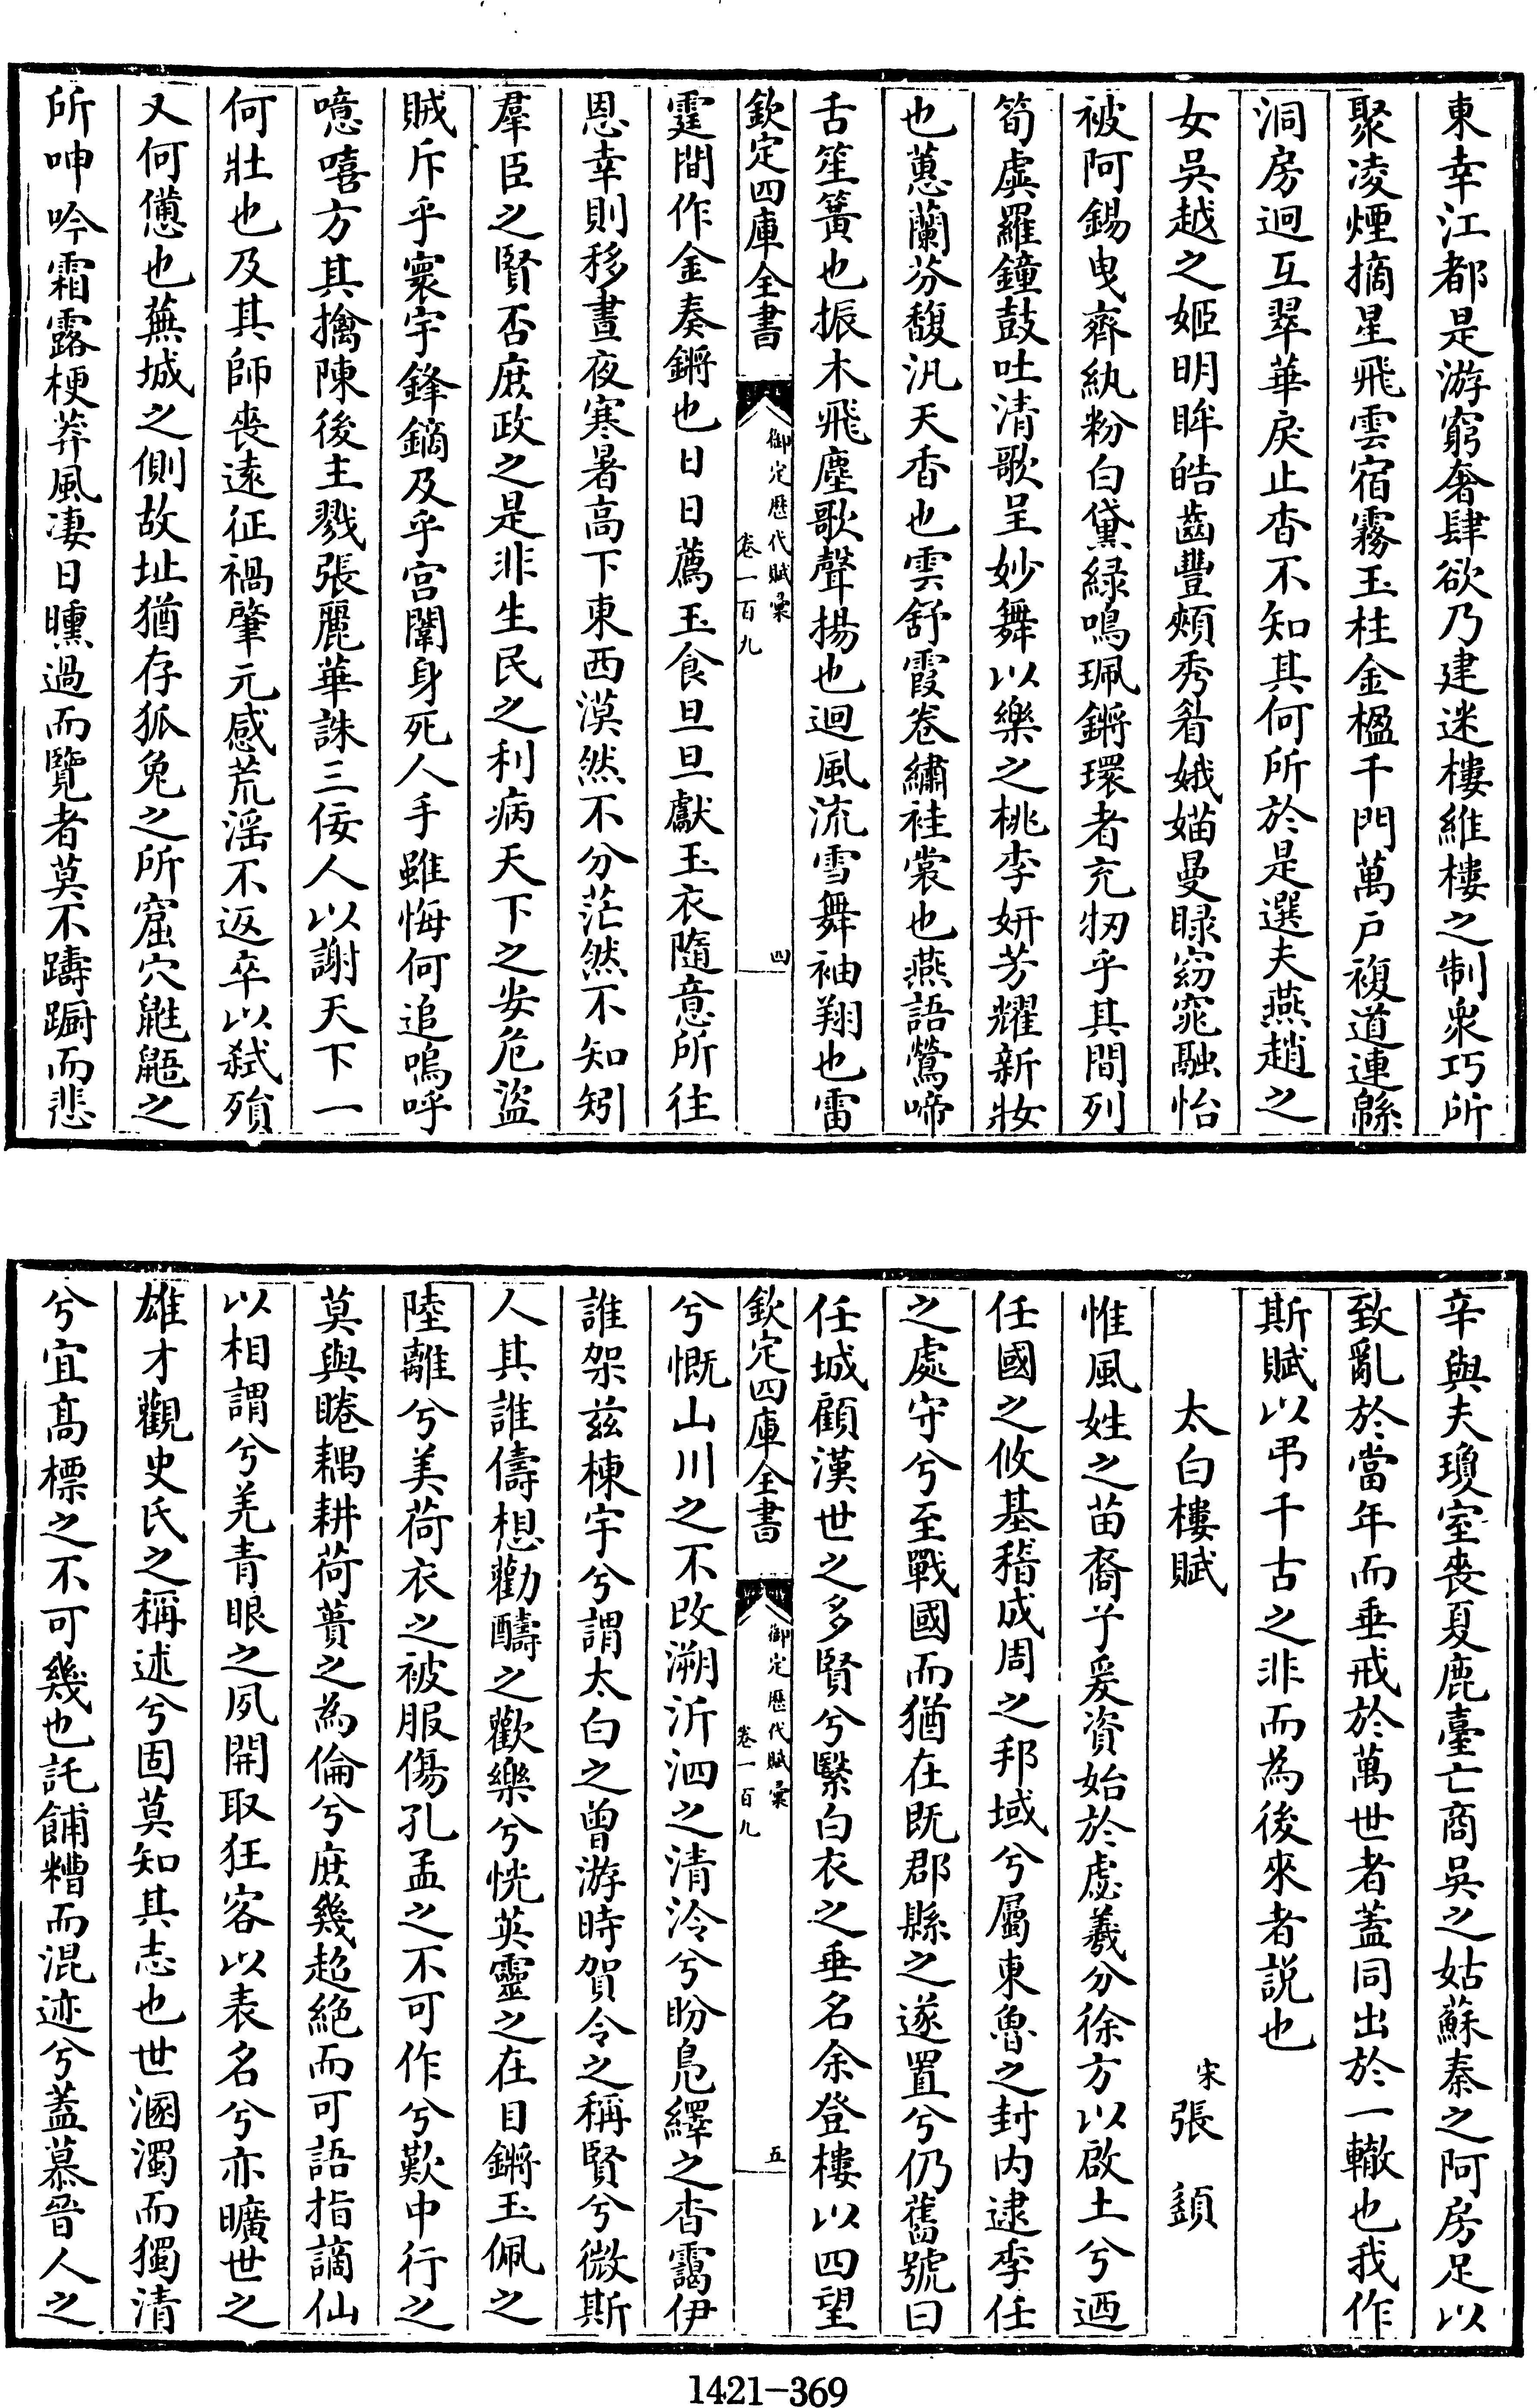 東幸江都是游窮奢肆欲乃建迷樓維樓之制衆巧所
聚凌煙摘星飛雲宿霧玉柱金楹千門萬戸複道連緜
洞房迥互翠華戾止杳不知其何所於是選夫燕趙之
女吳越之姬明眸皓齒豐頰秀眉娥媌曼睩窈窕融怡
被阿錫曳齊紈粉白黛緑鳴珮鏘環者充牣乎其間列
筍虡羅鐘鼓吐清歌呈妙舞以樂之桃李妍芳耀新妝
也蕙蘭芬馥汎天香也雲舒霞卷繡袿裳也燕語鶯啼
舌笙簧也振木飛塵歌聲揚也迴風流雪舞袖翔也雷
欽定四庫全書
御定歷代賦彙
卷一百九
四
霆間作金奏鏘也日日薦玉食旦旦獻玉衣隨意所往
恩幸則移晝夜寒暑高下東西漠然不分茫然不知矧
羣臣之賢否庶政之是非生民之利病天下之安危盜
賊斥乎寰宇鋒鏑及乎宮闈身死人手雖悔何追嗚呼
噫嘻方其擒陳後主戮張麗華誅三佞人以謝天下一
何壯也及其師喪遠征禍肇元感荒滛不返卒以弑殞
又何憊也蕪城之側故址猶存狐兔之所窟穴鼪鼯之
所呻吟霜露梗莽風凄日曛過而覽者莫不躊蹰而悲
辛與夫瓊室喪夏鹿臺亡商吳之姑蘇秦之阿房足以
致亂於當年而垂戒於萬世者蓋同出於一轍也我作
斯賦以弔千古之非而為後來者説也
太白樓賦
宋張䪴
惟風姓之苗裔兮爰資始於虙羲分徐方以啟土兮迺
任國之攸基稽成周之邦域兮屬東魯之封内逮季任
之處守兮至戰國而猶在既郡縣之遂置兮仍舊號曰
任城顧漢世之多賢兮繄白衣之垂名余登樓以四望
欽定四庫全書
御定歷代賦彙
卷一百九
五
兮慨山川之不改溯沂泗之清泠兮盼鳧繹之杳靄伊
誰架兹棟宇兮謂太白之曾游時賀令之稱賢兮微斯
人其誰儔想勸醻之歡樂兮恍英靈之在目鏘玉佩之
陸離兮美荷衣之被服傷孔孟之不可作兮歎中行之
莫與睠耦耕荷蕢之為倫兮庶幾超絶而可語指謫仙
以相謂兮羌青眼之夙開取狂客以表名兮亦曠世之
雄才觀史氏之稱述兮固莫知其志也世溷濁而獨清
兮宜髙標之不可幾也託餔糟而混迹兮蓋慕晉人之
1421-369